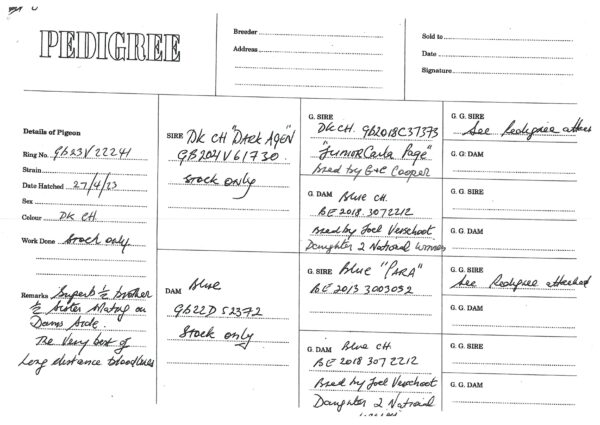 PEDIGREE
Breeder
Address
Sold to
Date
Signature
Details of Pigeon
Ring No. GB23V22241
Strain
Date Hatched 27/4/23
Sex
Colour DK CH
Work Done Stock only
Remarks Superb ½ brother
½ Sister Mating on
Dams side.
The Very best of
Long distance bloodlines
SIRE DK CH "DARK AGEN"
GB20 V61730.
Stock only
DAM Blue
GB22D52372
Stock only
G. SIRE
DK CH. GB2018C37373
"Junior Carla Page"
bred by G+C Cooper
G. DAM Blue CH.
BE 2018.3072212
Bred by Joel Verschoot
Daughter 2 National winner
G. SIRE Blue "PARA"
BE 2013 3003052
G. DAM Blue CH
BE 2018 3072212
Bred by Joel Verschoot
Daughter 2 National
G. G. SIRE
See Pedigree attached
G. G. DAM
G. G. SIRE
G. G. DAM
G. G. SIRE
See Pedigree attached
G. G. DAM
G. G. SIRE
G. G. DAM